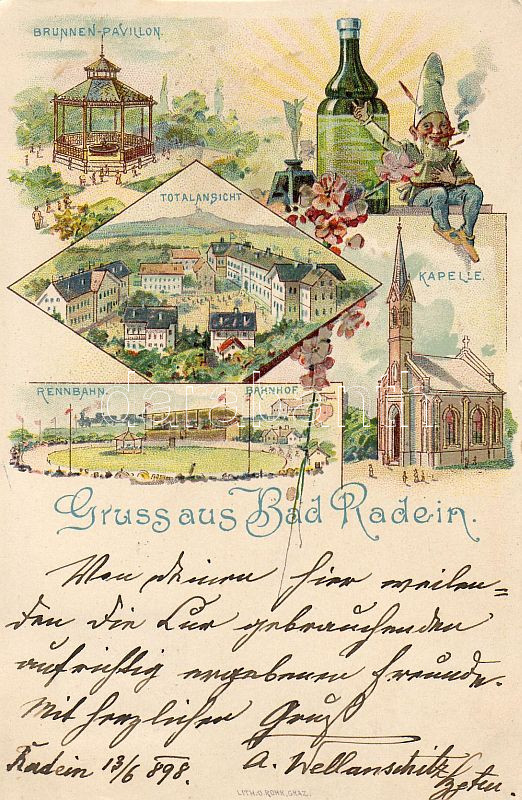 BRUNNEN-PAVILLON.
TOTALANSICHT
KAPELLE.
RENNBAHN.
BAHNHOF
Gruss aus Bad Radein.
Von deinen hier weilen-
den die Cur gebrauchenden
aufrichtig ergebenen Freunde.
Mit herzlichen Gruß
Radein 13/6 898.
A. Wellanschitz
LITH. O. ROHR, GRAZ.